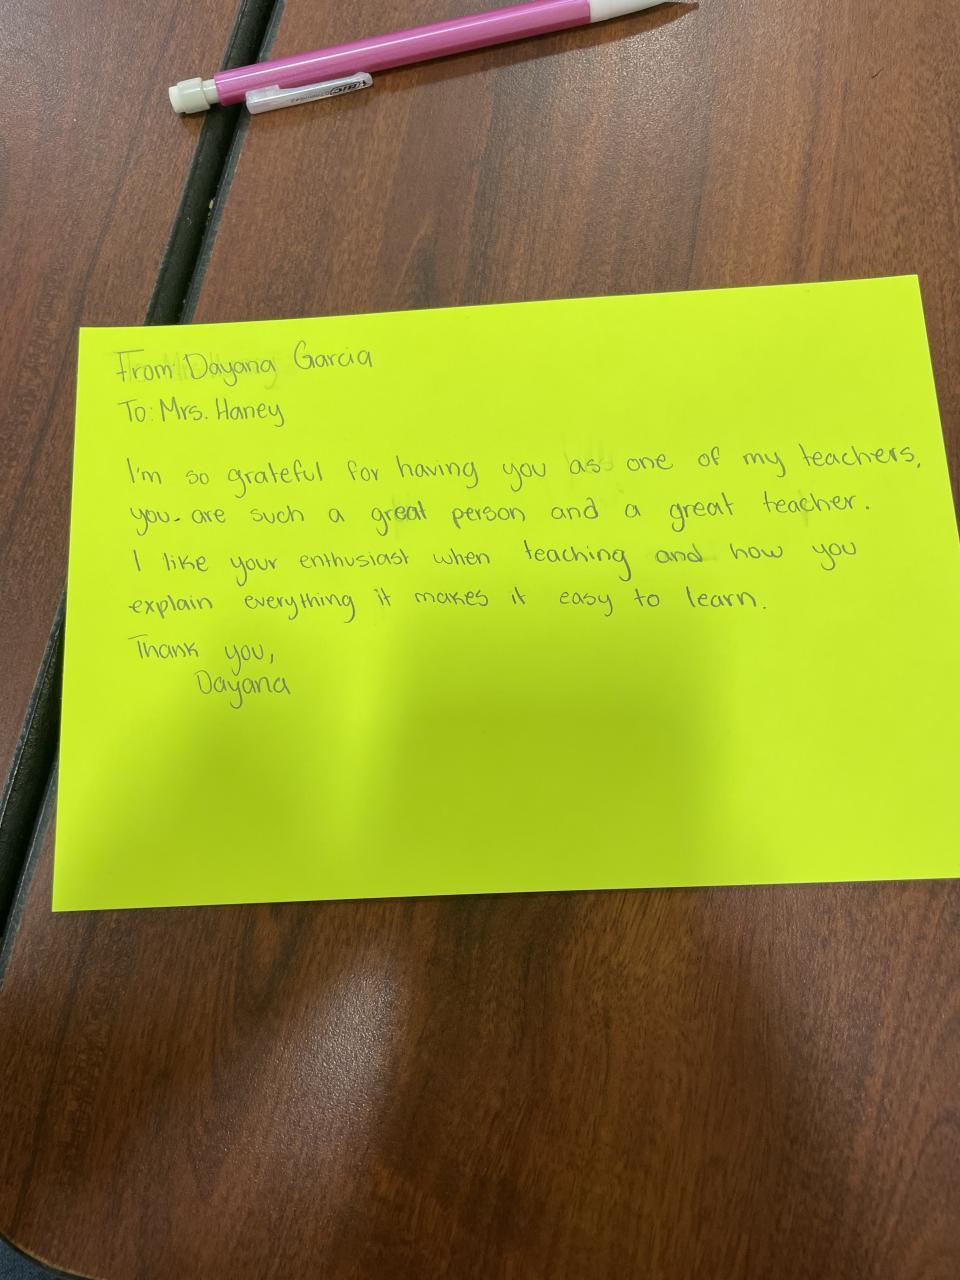 BIC
From: Dayana Garcia
To: Mrs. Haney
I'm so grateful for having you as one of my teachers,
you are such a great person and a great teacher.
I like your enthusiast when teaching and how you
explain everything it makes it easy to learn.
Thank you,
Dayana